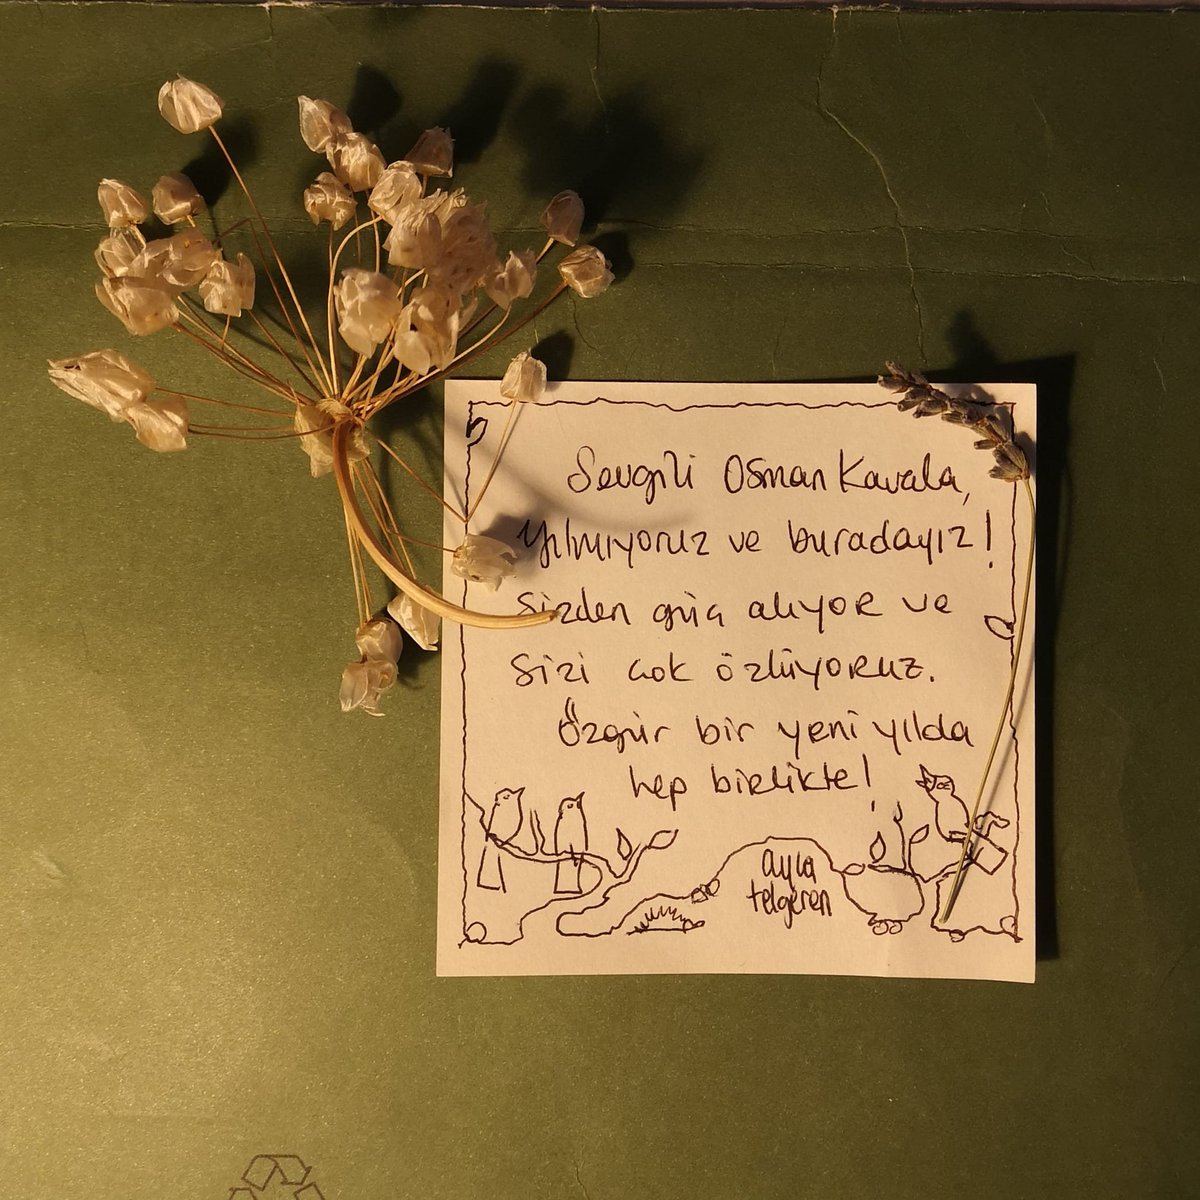 Sevgili Osman Kavala,
Yılmıyoruz ve buradayız!
Sizden güç alıyor ve
sizi çok özlüyoruz.
Özgür bir yeni yılda
hep birlikte!
ayla
telgeren